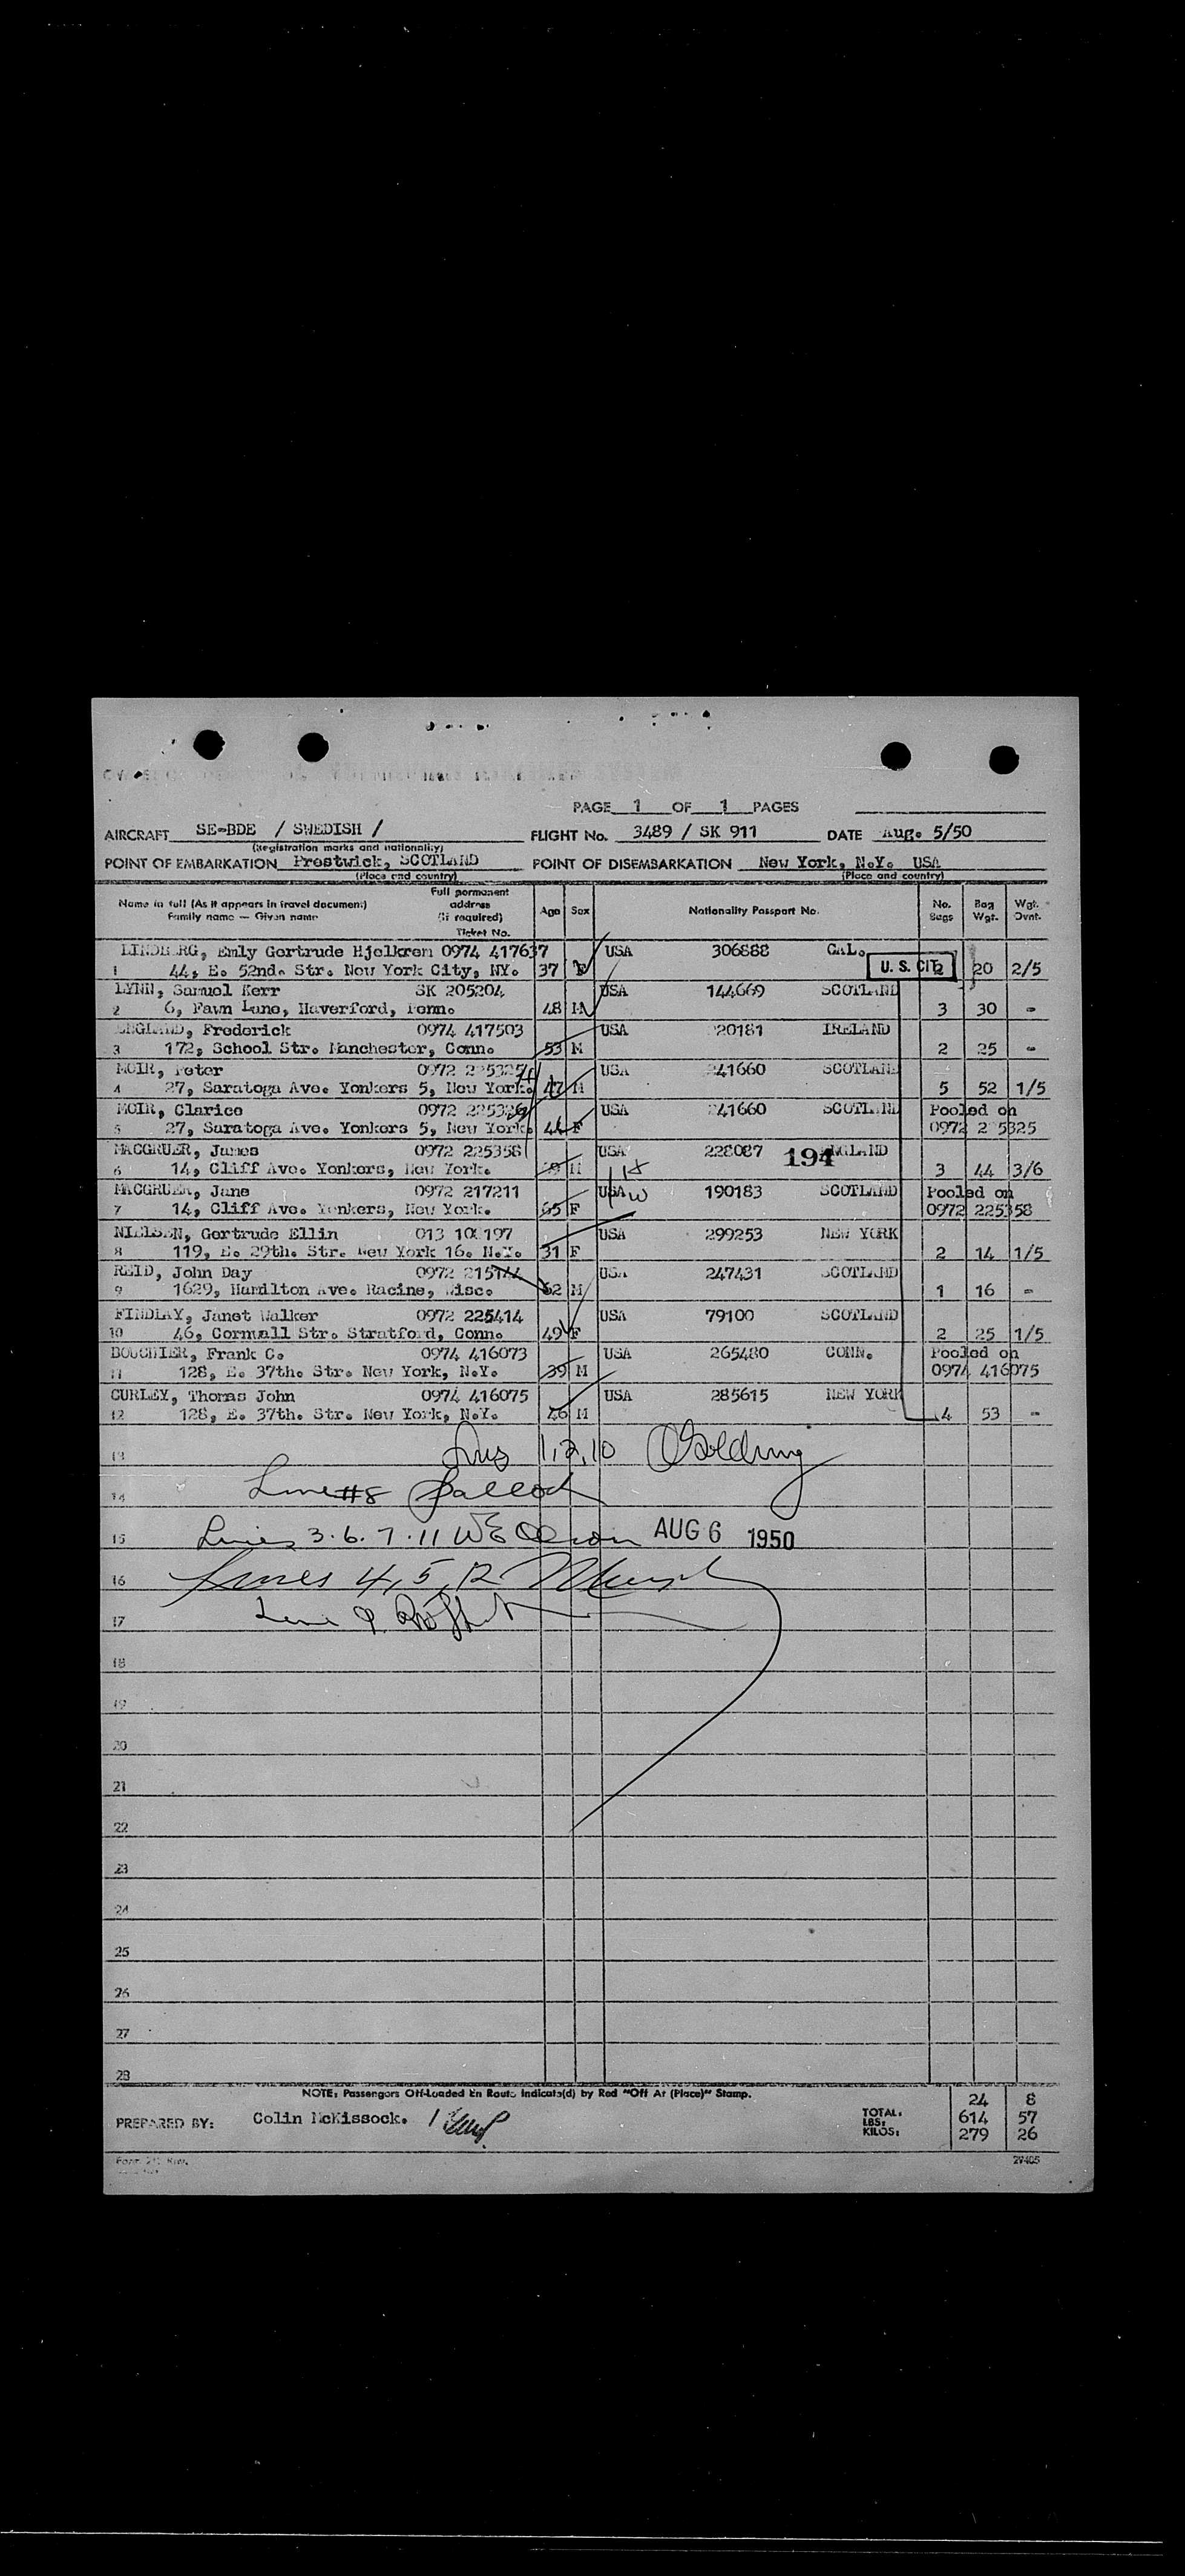 PAGE 1 OF 1 PAGES
AIRCRAFT SE-BDE / SWEDISH / FLIGHT No. 3489 / SK 911 DATE Aug. 5/50
(Registration marks and nationality)
POINT OF EMBARKATION Prestwick, SCOTLAND POINT OF DISEMBARKATION New York, N.Y. USA
(Place and country) (Place and country)
Name in full (As it appears in travel document) Family name — Given name Full permanent address (if required) Ticket No. Age Sex Nationality Passport No. No. Bags Bag Wgt. Wgt. Ovnt.
LINDBERG, Emly Gertrude Hjelkrem 0974 417637 USA 306888 CAL.
1 44, E. 52nd. Str. New York City, NY. 37 F U. S. CIT. 2 20 2/5
LYNN, Samuel Kerr SK 205204 USA 144669 SCOTLAND
2 6, Fawn Lane, Haverford, Penn. 48 M 3 30 -
ENGLAND, Frederick 0974 417503 USA 20181 IRELAND
3 172, School Str. Manchester, Conn. 53 M 2 25 -
MOIR, Peter 0972 USA 241660 SCOTLAND
4 27, Saratoga Ave. Yonkers 5, New York. 47 M 5 52 1/5
MOIR, Clarice 0972 USA 241660 SCOTLAND Pooled on
5 27, Saratoga Ave. Yonkers 5, New York. 44 F 0972 225325
MACGRUER, James 0972 225358 USA 228087 194 ENGLAND
6 14, Cliff Ave. Yonkers, New York. M 3 44 3/6
MACGRUER, Jane 0972 217211 USA W 190183 SCOTLAND Pooled on
7 14, Cliff Ave. Yonkers, New York. 65 F 0972 225358
NIELSEN, Gertrude Ellin 013 USA 299253 NEW YORK
8 119, E. 29th. Str. New York 16. N.Y. 31 F 2 14 1/5
REID, John Day 0972 215144 USA 247431 SCOTLAND
9 1629, Hamilton Ave. Racine, Wisc. 62 M 1 16 -
FINDLAY, Janet Walker 0972 225414 USA 79100 SCOTLAND
10 46, Cornwall Str. Stratford, Conn. 49 F 2 25 1/5
BOUCHIER, Frank C. 0974 416073 USA 265480 CONN. Pooled on
11 128, E. 37th. Str. New York, N.Y. 39 M 0974 416075
CURLEY, Thomas John 0974 416075 USA 285615 NEW YORK
12 128, E. 37th. Str. New York, N.Y. 46 M 4 53 -
13 1,2,10 Golding
14 Line #8
15 Lines 3.6.7.11 AUG 6 1950
16 Lines 4,5,12
17 Line 9
18
19
20
21
22
23
24
25
26
27
28
NOTE: Passengers Off-Loaded En Route Indicate(d) by Red "Off At (Place)" Stamp.
24 8
PREPARED BY: Colin McKissock. TOTAL:
LBS: 614 57
KILOS: 279 26
29405